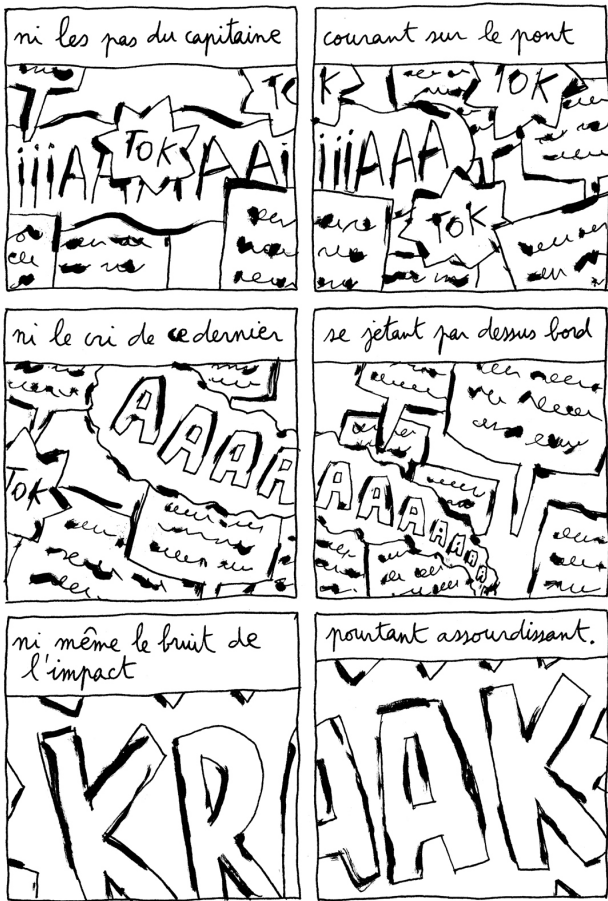 ni les pas du capitaine
TOK
TOK
iiiAA AAi
courant sur le pont
K
TOK
iiiAAA
TOK
ni le cri de ce dernier
AAAAA
TOK
se jetant par dessus bord
AAAAAAAAA
ni même le bruit de
l'impact
KR
pourtant assourdissant.
AAK